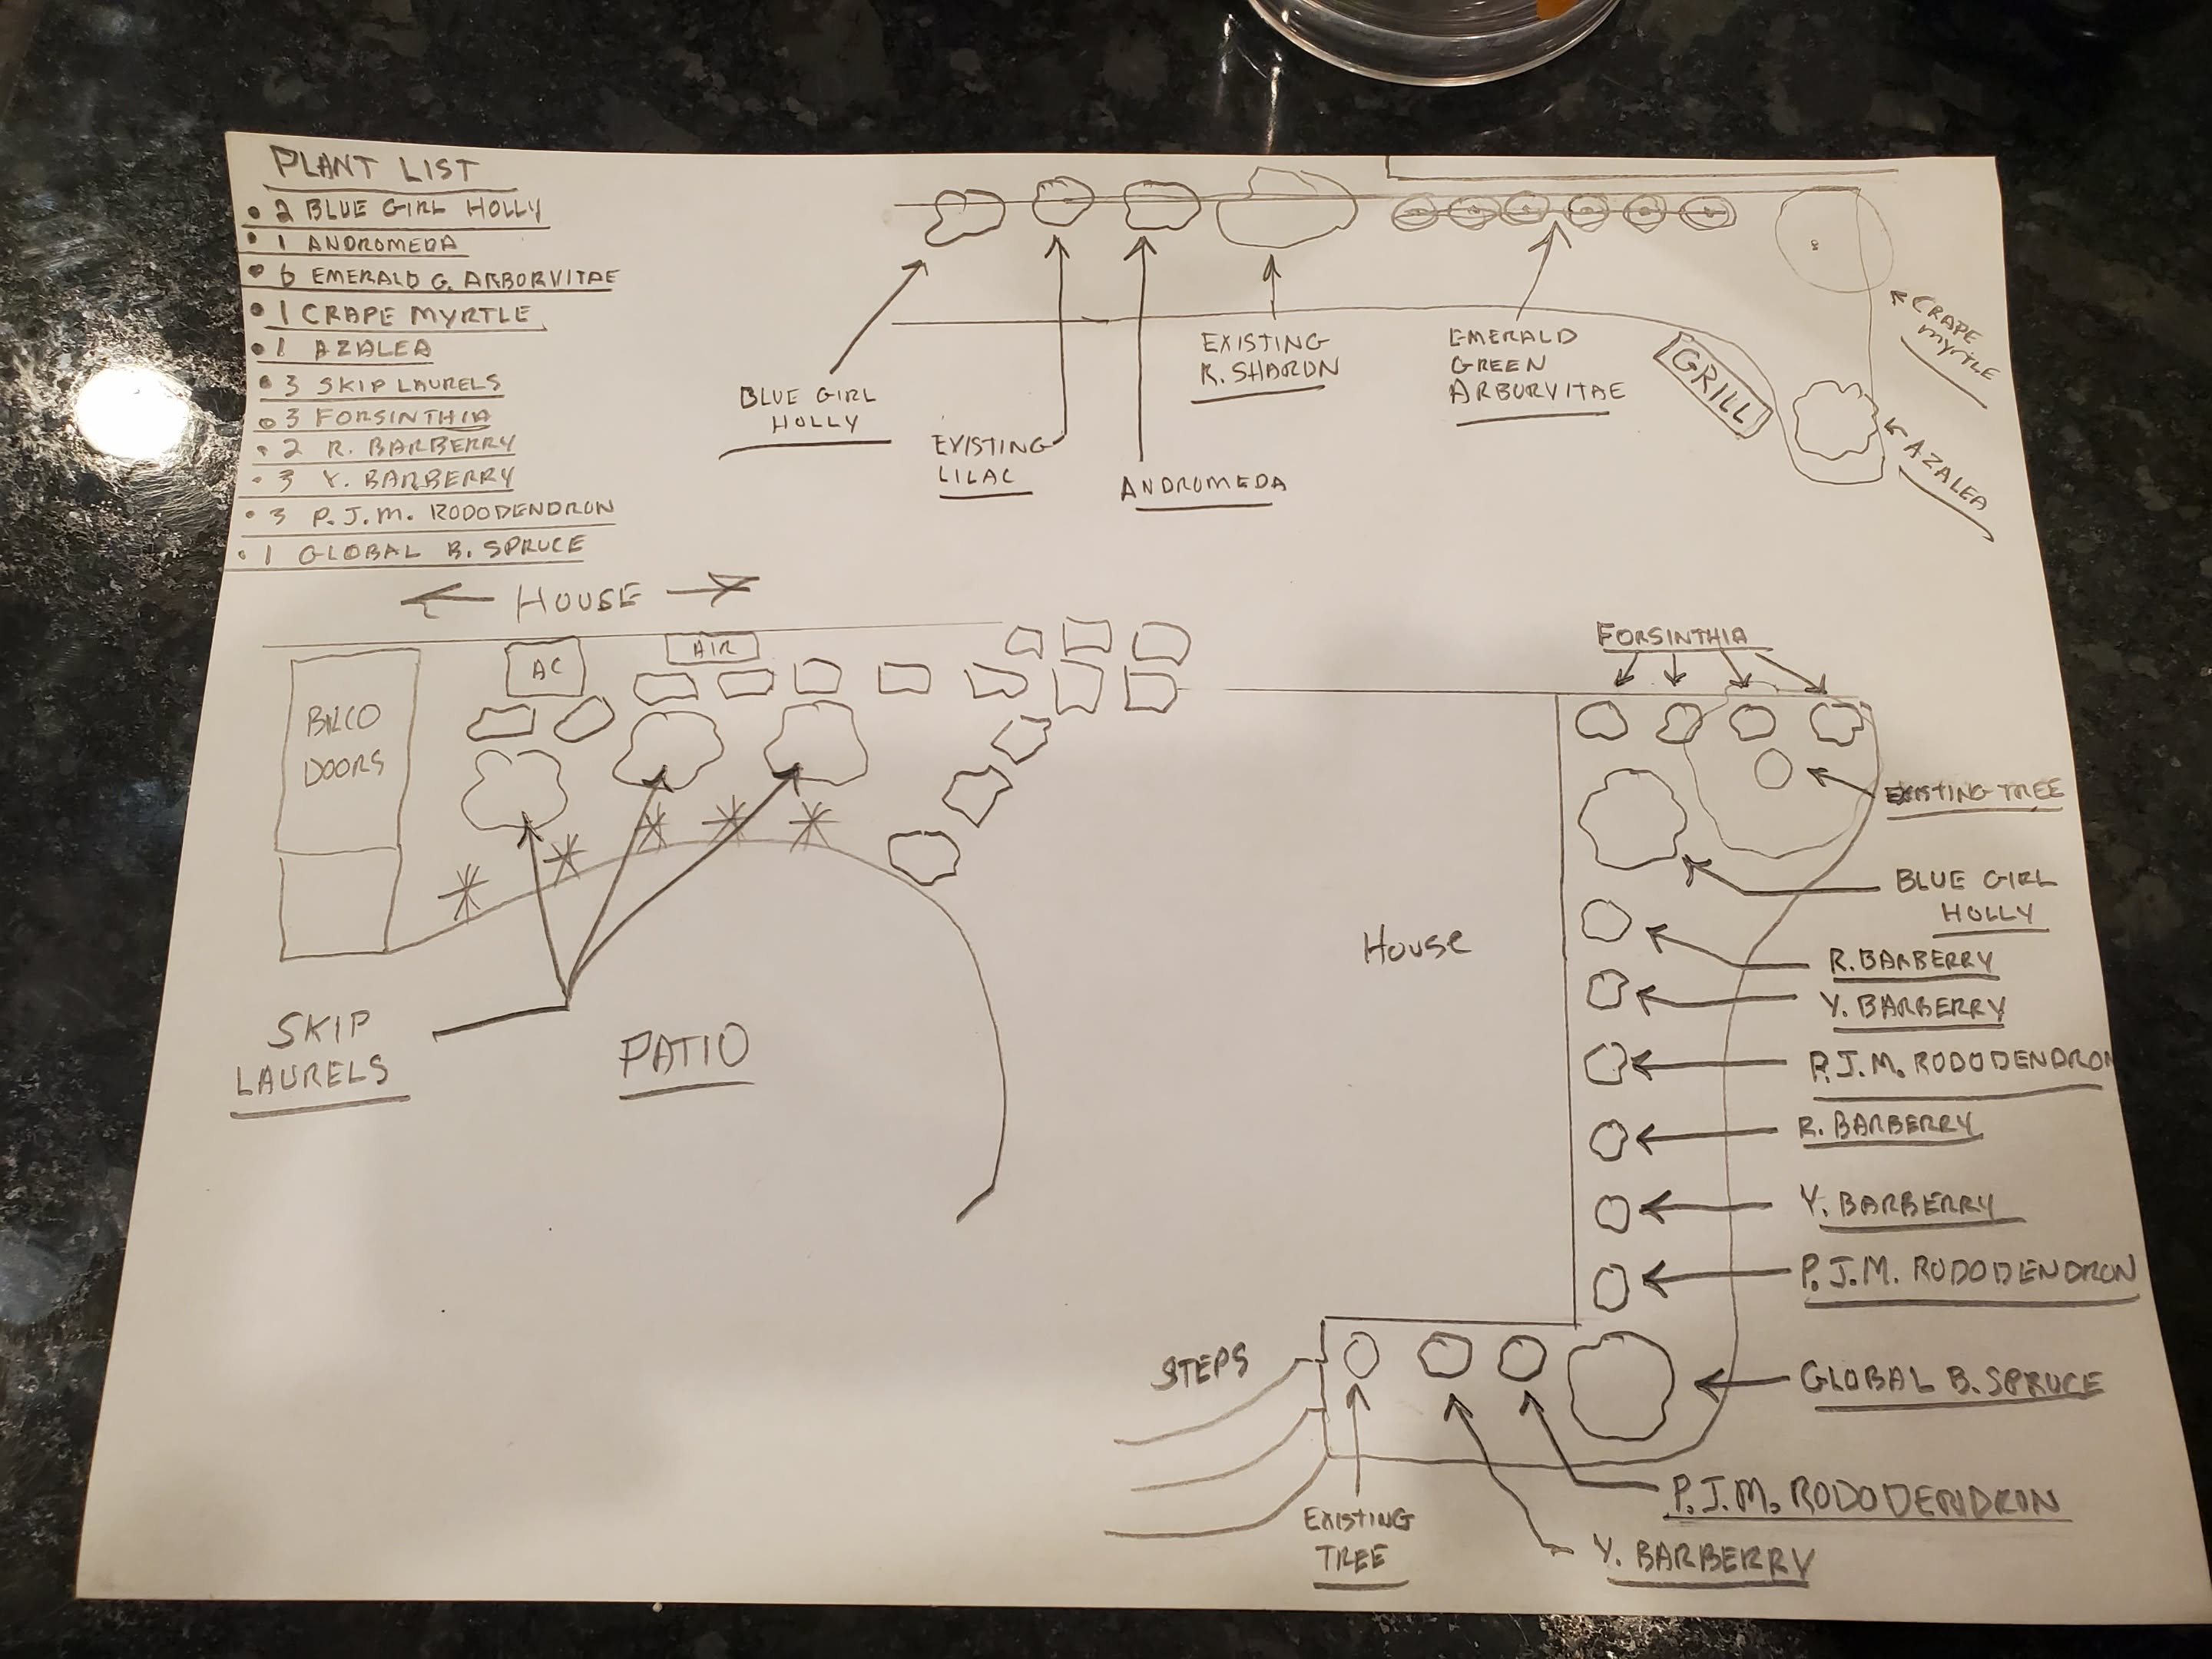 PLANT LIST
• 2 BLUE GIRL HOLLY
• 1 ANDROMEDA
• 6 EMERALD G. ARBORVITAE
• 1 CRAPE MYRTLE
• 1 AZALEA
• 3 SKIP LAURELS
• 3 FORSINTHIA
• 2 R. BARBERRY
• 3 Y. BARBERRY
• 3 P.J.M. RODODENDRON
• 1 GLOBAL B. SPRUCE
BLUE GIRL
HOLLY
EXISTING
LILAC
ANDROMEDA
EXISTING
R. SHARON
EMERALD
GREEN
ARBORVITAE
GRILL
CRAPE
MYRTLE
AZALEA
HOUSE
BILCO
DOORS
AC
AIR
SKIP
LAURELS
PATIO
FORSINTHIA
EXISTING TREE
BLUE GIRL
HOLLY
House
R. BARBERRY
Y. BARBERRY
P.J.M. RODODENDRON
R. BARBERRY
Y. BARBERRY
P.J.M. RODODENDRON
GLOBAL B. SPRUCE
STEPS
P.J.M. RODODENDRON
EXISTING
TREE
Y. BARBERRY